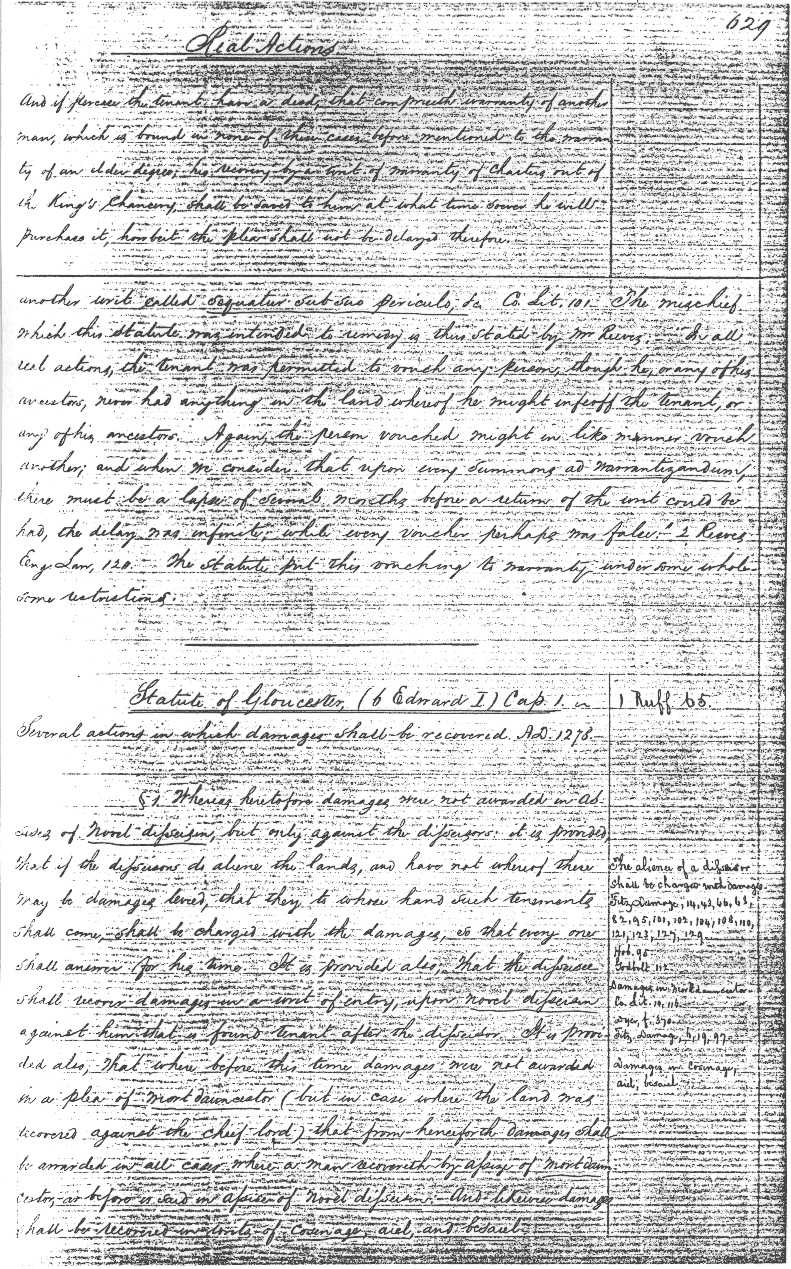 629
Real Actions
And if percase the tenant have a deed, that compriseth warranty of another
man, which is bound in none of these cases before mentioned to the warran
ty of an elder degree; his recovery by a writ of warranty of Charters out of
the King's Chancery, shall be saved to him at what time soever he will
purchase it, howbeit the plea shall not be delayed therefore.
another writ called sequatur sub suo periculo, &c Co. Lit. 101. The mischief
which this statute was intended to remedy is thus stated by Mr Reeves. "In all
real actions, the tenant was permitted to vouch any person, though he, or any of his
ancestors, never had anything in the land whereof he might infeoff the tenant, or
any of his ancestors. Again, the person vouched might in like manner vouch
another; and when we consider that upon every summons ad warrantizandum,
there must be a lapse of several months before a return of the writ could be
had, the delay was infinite; while every voucher perhaps was false." 2 Reeves
Eng. Law, 120. The statute put this vouching to warranty under some whole
some restrictions.
Statute of Gloucester, (6 Edward I) Cap. 1. in
1 Ruff 65.
Several actions in which damages shall be recovered. A.D. 1278.
§ 1. Whereas heretofore damages were not awarded in As-
sises of Novel disseisin, but only against the disseisors: it is provided,
That if the disseisors do aliene the lands, and have not whereof there
may be damages levied, that they to whose hand such tenements
shall come, shall be charged with the damages, so that every one
shall answer for his time. It is provided also, That the disseisee
shall recover damages in a writ of entry, upon novel disseisin
against him that is found tenant after the disseisor. It is provi-
ded also, That where before this time damages were not awarded
in a plea of mortdauncestor (but in case where the land was
recovered against the chief lord) that from henceforth damages shall
be awarded in all cases where a man recovereth by assize of mortdaun-
cestor, as before is said in assize of novel disseisin. And likewise damages
shall be recovered in writs of cosenage, aiel, and besaiel.
The alienee of a disseisor
shall be charged with damages.
Fitz. Damage, 14, 43, 66, 68,
82, 95, 101, 102, 104, 108, 110,
121, 123, 127, 129
Hob. 95
Godbolt. 112
Damages in Mortdauncestor
Co. Lit.
Dyer, f. 370
Fitz. Damag.
Damages in Cosinage,
aiel, besaiel